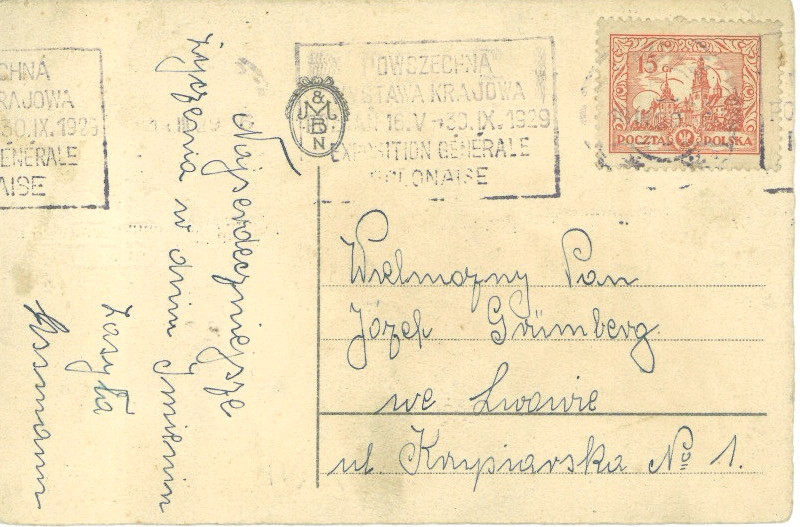 POWSZECHNA
WYSTAWA KRAJOWA
16.V-30.IX.1929
EXPOSITION GÉNÉRALE
POLONAISE
CHNA
RAJOWA
30.IX.1929
GÉNÉRALE
AISE
15
POCZTA POLSKA
& M B N
Najserdeczniejsze
życzenia w dniu Imienin
zasyła
Wielmożny Pan
Józef Grümberg.
we Lwowie
ul. Krupiarska № 1.